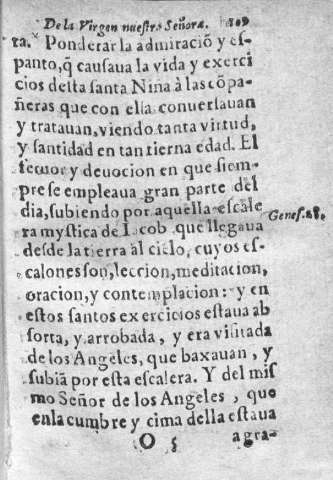 De la Virgen nuestra Señora. 109
ra. Ponderar la admiraciõ y es-
panto, q̃ causaua la vida y exerci
cios desta santa Niña à las cõpa-
ñeras que con ella conuersauan
y tratauan, viendo tanta virtud,
y santidad en tan tierna edad. El
feruor y deuocion en que siem-
pre se empleaua gran parte del
dia, subiendo por aquella escale
ra mystica de Iacob que llegaua
Genes. 28.
desde la tierra al cielo, cuyos es-
calones son, leccion, meditacion,
oracion, y contemplacion: y en
estos santos exercicios estaua ab
sorta, y arrobada, y era visitada
de los Angeles, que baxauan, y
subiã por esta escalera. Y del mis
mo Señor de los Angeles, que
en la cumbre y cima della estaua
O 5 agra-